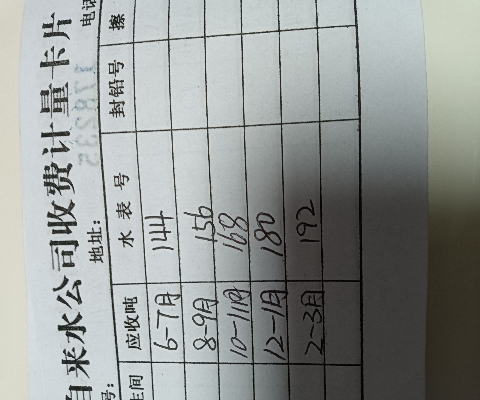 自来水公司收费计量卡片
号:
地址:
电话
生间 应收吨 水表号 封铅号 擦
6-7月 144
8-9月 156
10-11月 168
12-1月 180
2-3月 192